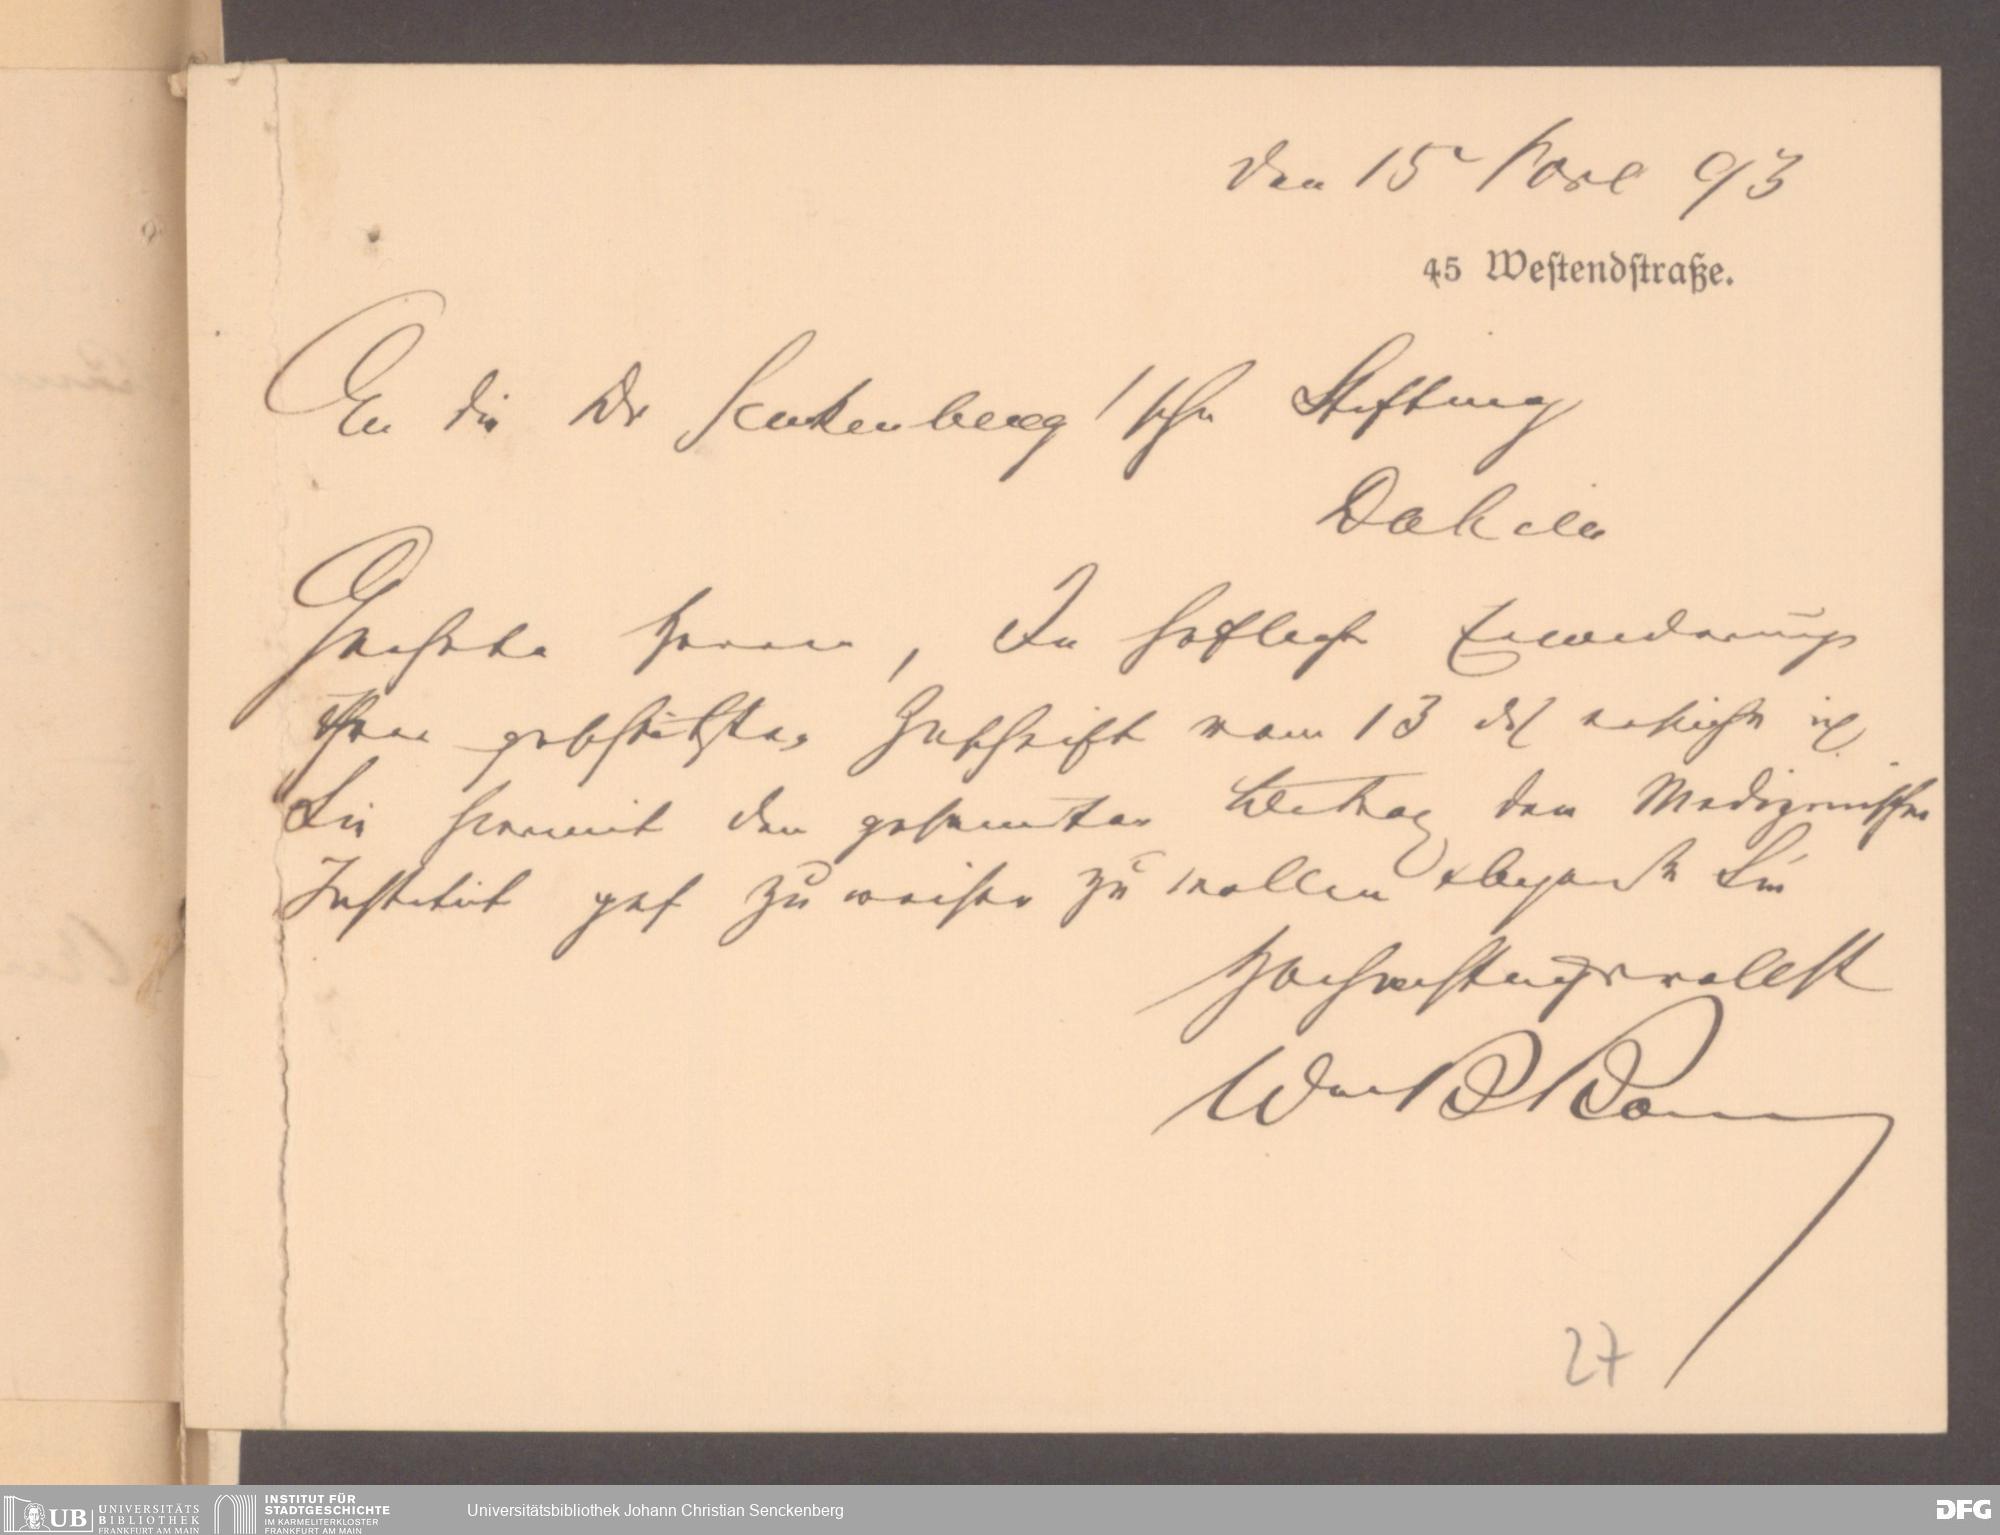 den 15 Nov 93
45 Weſtendſtraße.
An die Dr Senkenberg'sche Stiftung
Dahier
Geehrte Herren, In höflicher Erwiederung
Ihrer geschätzten Zuschrift vom 13 ds ersuche ich
Sie hiermit den gesammten Beitrag dem Medizinischen
Institut gef zuweisen zu wollen Sie
Hochachtungsvollst
27
UB UNIVERSITÄTS BIBLIOTHEK FRANKFURT AM MAIN
INSTITUT FÜR STADTGESCHICHTE IM KARMELITERKLOSTER FRANKFURT AM MAIN
Universitätsbibliothek Johann Christian Senckenberg
DFG